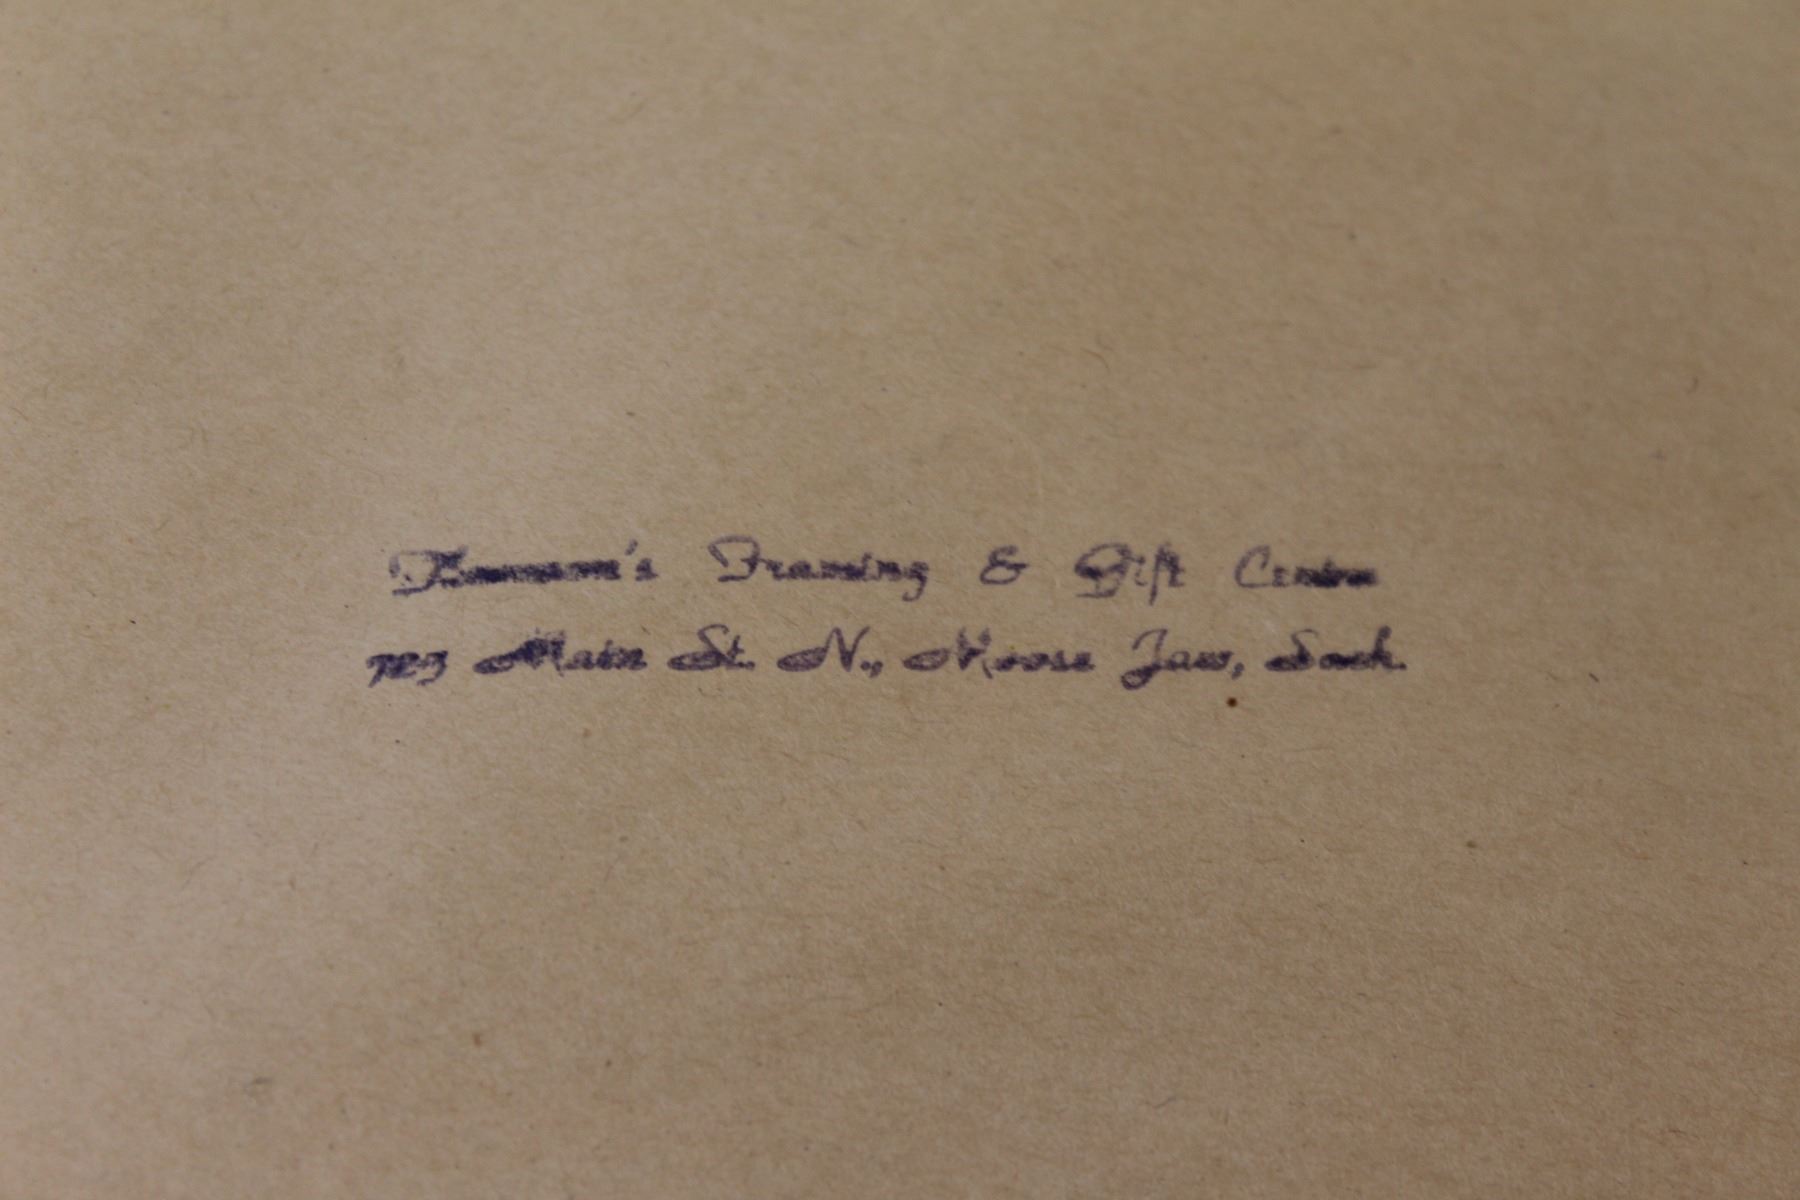 Framing & Gift Centre
723 Main St. N., Moose Jaw, Sask.